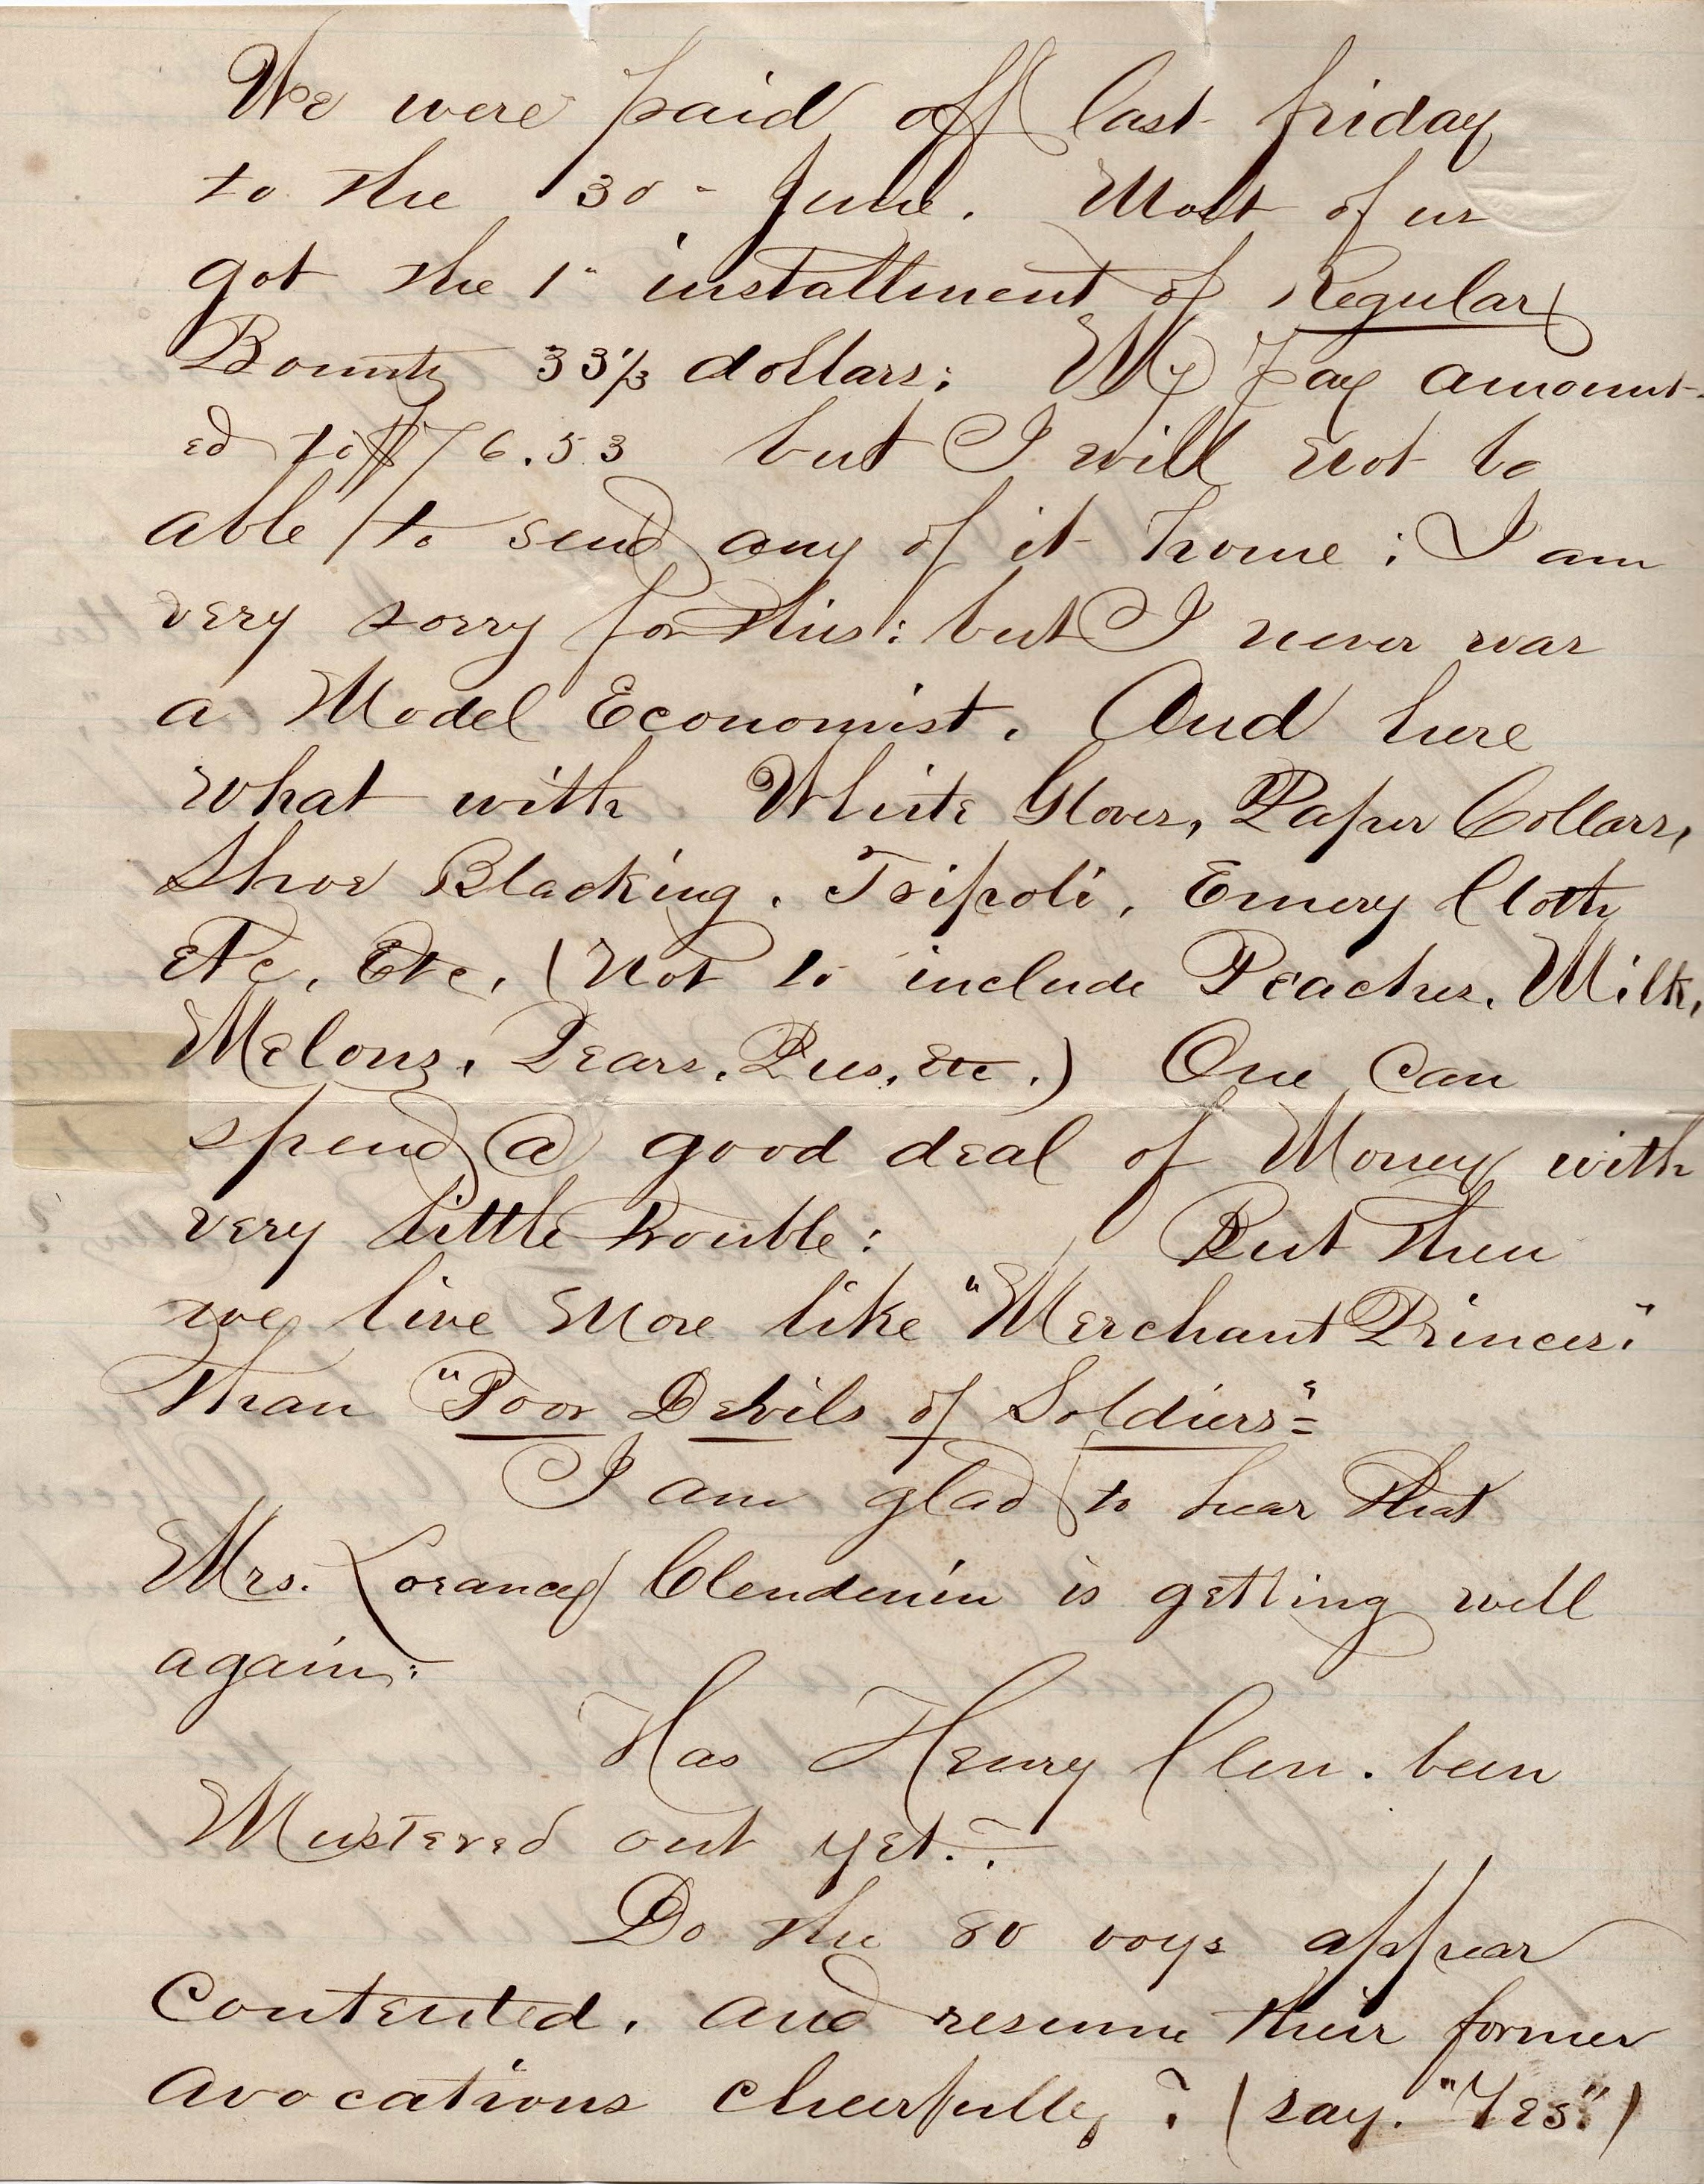 We were paid off last friday
to the 30 - June. Most of us
got the 1" installment of Regular
Bounty 33⅓ dollars: My Pay amount-
ed to $76.53 but I will not be
able to send any of it home; I am
very sorry for this: but I never was
a Model Economist. And here
what with White Gloves, Paper Collars,
Shoe Blacking. Tripoli, Emery Cloth
etc, Etc, (not to include Peaches. Milk,
Melons, Pears, Pies, etc.) One can
spend a good deal of Money with
very little trouble: But then
we live more like "Merchant Princes"
than "Poor Devils of Soldiers"=
I am glad to hear that
Mrs. Lorancy Clendenin is getting well
again:
Has Henry Clen. been
Mustered out yet.?
Do the 80 boys appear
Contented. and resume their former
avocations cheerfully? (say. "Yes.")